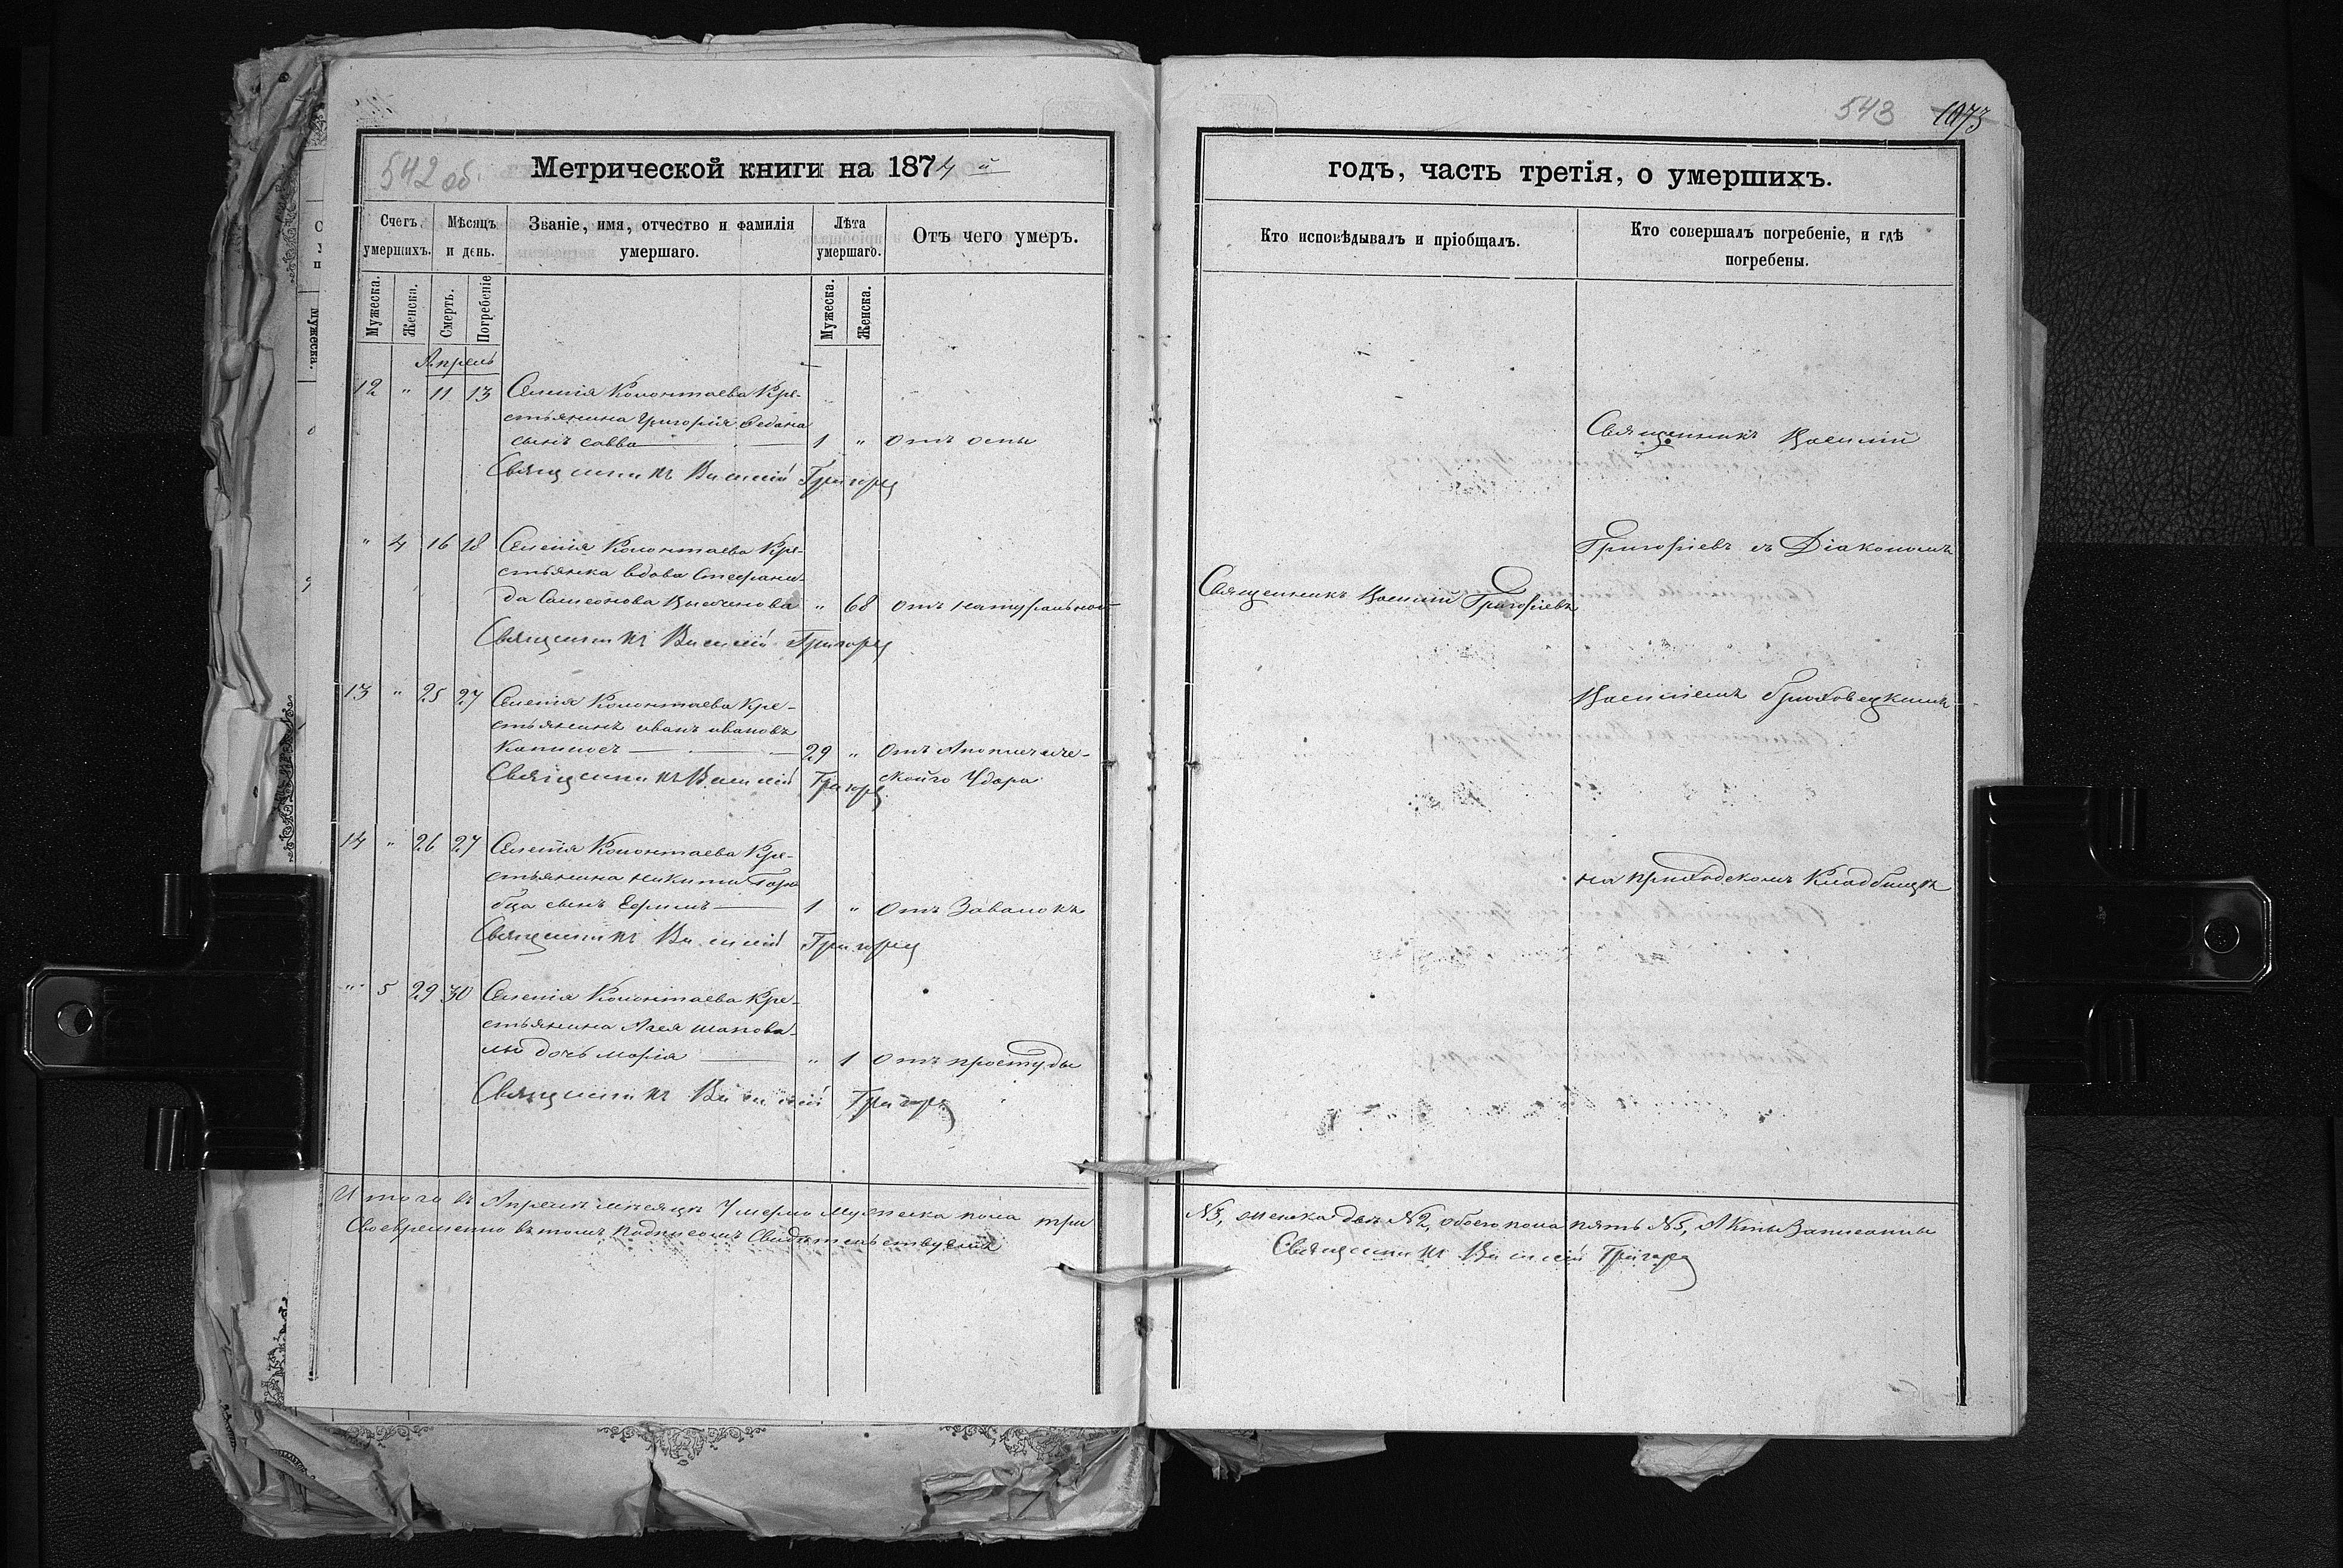 542 об.
Метрической книги на 1874й
Счетъ умершихъ.
Мѣсяцъ и день.
Званіе, имя, отчество и фамилія умершаго.
Лѣта умершаго.
Отъ чего умеръ.
Мужеска.
Женска.
Смерть.
Погребеніе
Мужеска.
Женска.
Апрель
12 " 11 13 Селенія Колонтаева Кре-
стьянина Григорія Федана
сынъ Савва 1 " отъ оспы
Священникъ Василій Григорьев
" 4 16 18 Селенія Колонтаева Кре-
стьянка вдова Стефани-
да Самсонова " 68 отъ натуральной
Священникъ Василій Григорьев
13 " 25 27 Селенія Колонтаева Кре-
стьянинъ иванъ ивановъ
29 " отъ Апоплексиче-
скойго Удара
Священникъ Василій Григорьев
14 " 26 27 Селенія Колонтаева Кре-
стьянина Никиты Горо
бца сынъ Ефимъ 1 " отъ Завалокъ
Священникъ Василій Григорьев
" 5 29 30 Селенія Колонтаева Кре-
стьянина шапова-
лы дочь марія " 1 отъ простуды
Священникъ Василій Григорьев
Итого въ Апрелѣ мѣсяцѣ Умерло Мужеска пола три
Своевременно въ томъ подписомъ Свидѣтельствуемъ
543 1073
годъ, часть третія, о умершихъ.
Кто исповѣдывалъ и пріобщалъ.
Кто совершалъ погребеніе, и гдѣ погребены.
Священникъ Василій
Григоріевъ съ Діакономъ
Священникъ Василій Григоріевъ
Василіемъ Грюховецкимъ
на приходскомъ Кладбищѣ
№3, женска двѣ №2, обоего пола пять №5, Акты Записаны
Священникъ Василій Григорьев